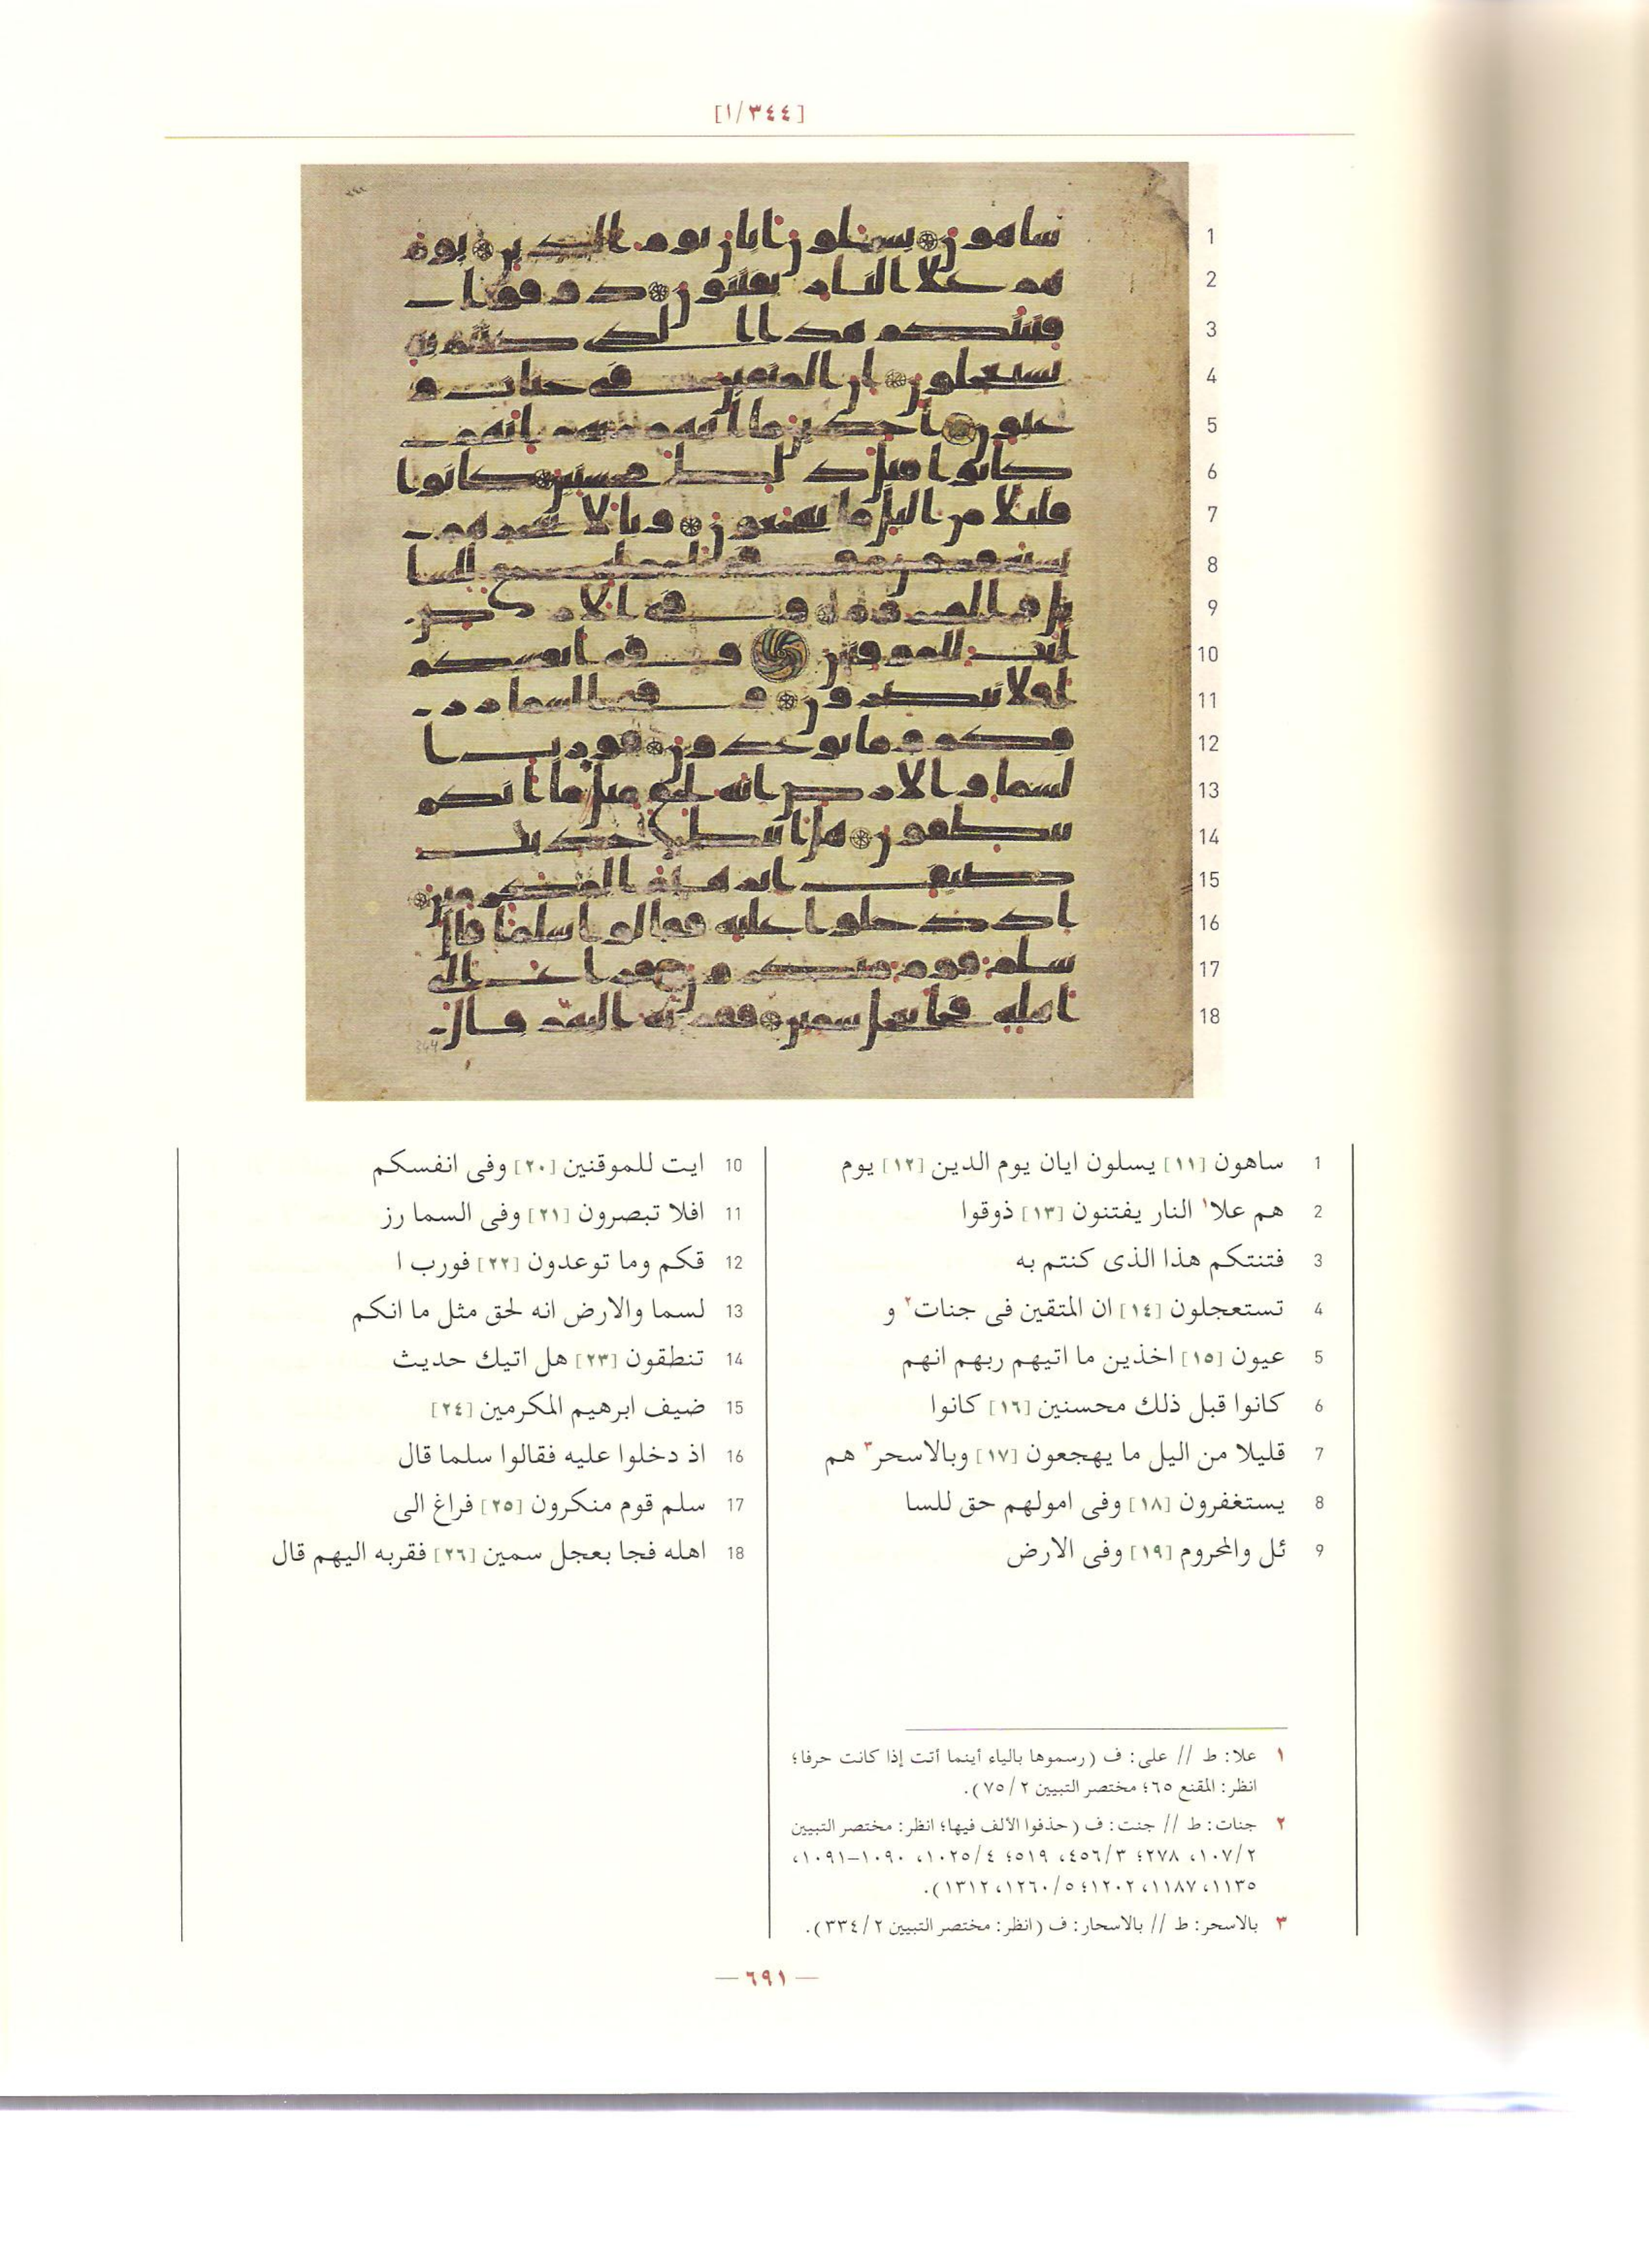 [٣٤٤/١]
1 ساهون [١١] يسلون ايان يوم الدين [١٢] يوم
2 هم علا١ النار يفتنون [١٣] ذوقوا
3 فتنتكم هذا الذى كنتم به
4 تستعجلون [١٤] ان المتقين فى جنات٢ و
5 عيون [١٥] اخذين ما اتيهم ربهم انهم
6 كانوا قبل ذلك محسنين [١٦] كانوا
7 قليلا من اليل ما يهجعون [١٧] وبالاسحر٣ هم
8 يستغفرون [١٨] وفى امولهم حق للسا
9 ئل والمحروم [١٩] وفى الارض
10 ايت للموقنين [٢٠] وفى انفسكم
11 افلا تبصرون [٢١] وفى السما رز
12 قكم وما توعدون [٢٢] فورب ا
13 لسما والارض انه لحق مثل ما انكم
14 تنطقون [٢٣] هل اتيك حديث
15 ضيف ابرهيم المكرمين [٢٤]
16 اذ دخلوا عليه فقالوا سلما قال
17 سلم قوم منكرون [٢٥] فراغ الى
18 اهله فجا بعجل سمين [٢٦] فقربه اليهم قال
١ علا: ط // على: ف (رسموها بالياء أينما أتت إذا كانت حرفا؛
انظر: المقنع ٦٥؛ مختصر التبيين ٧٥/٢).
٢ جنات: ط // جنت: ف (حذفوا الألف فيها؛ انظر: مختصر التبيين
١٠٧/٢، ٢٧٨؛ ٤٥٦/٣، ٥١٩؛ ١٠٢٥/٤، ١٠٩٠-١٠٩١،
١١٣٥، ١١٨٧، ١٢٠٢؛ ١٢٦٠/٥، ١٣١٢).
٣ بالاسحر: ط // بالاسحار: ف (انظر: مختصر التبيين ٣٣٤/٢).
— ٦٩١ —